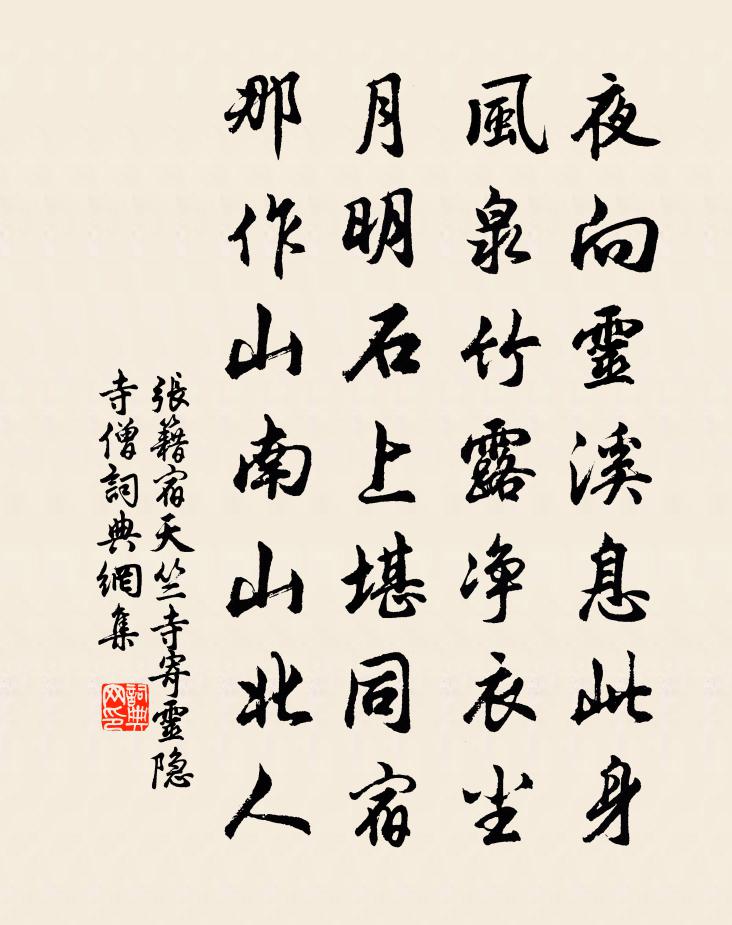 夜向靈溪息此身
風泉竹露净衣尘
月明石上堪同宿
那作山南山北人
張籍宿天竺寺寄靈隐
寺僧詞典網集
詞典网印